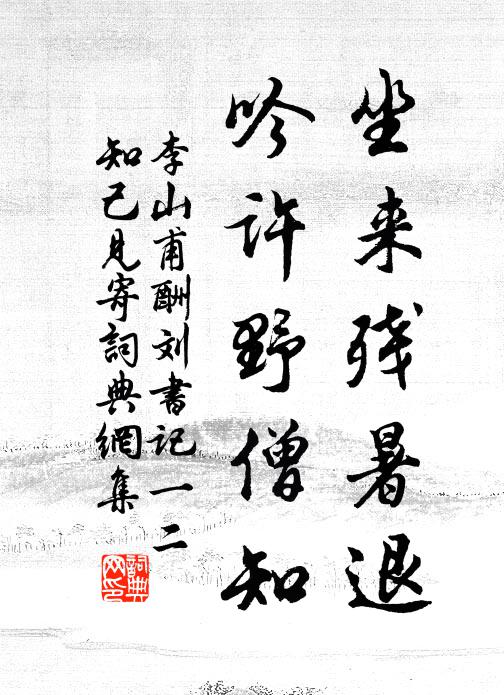 坐来残暑退
吟许野僧知
李山甫酬刘书记一二
知己见寄詞典網集
詞典网印